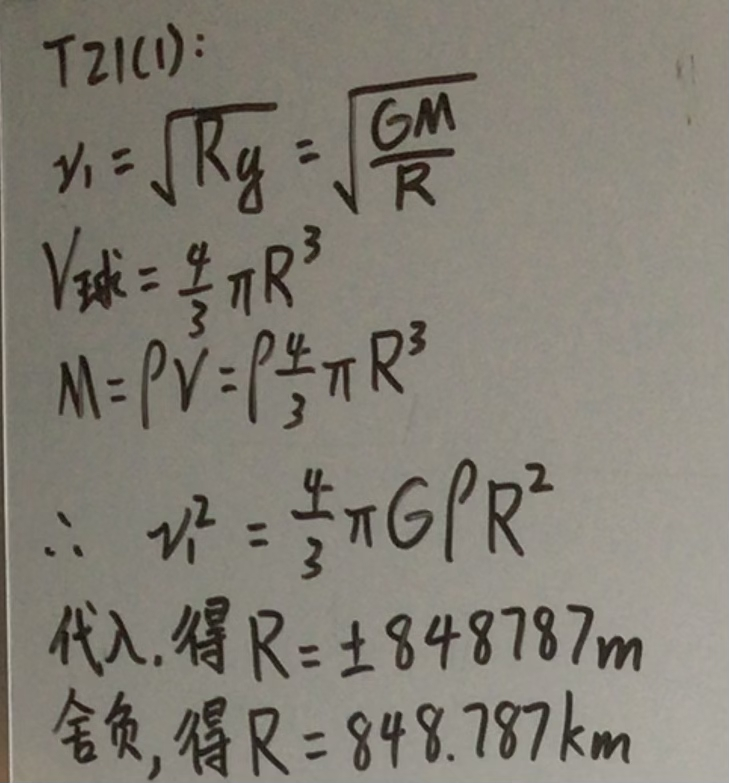 T21(1):
v₁ = √Rg = √(GM/R)
V球 = 4/3 πR³
M = ρV = ρ 4/3 π R³
∴ v₁² = 4/3 πGρR²
代入.得 R = ±848787m
舍负,得 R = 848.787km